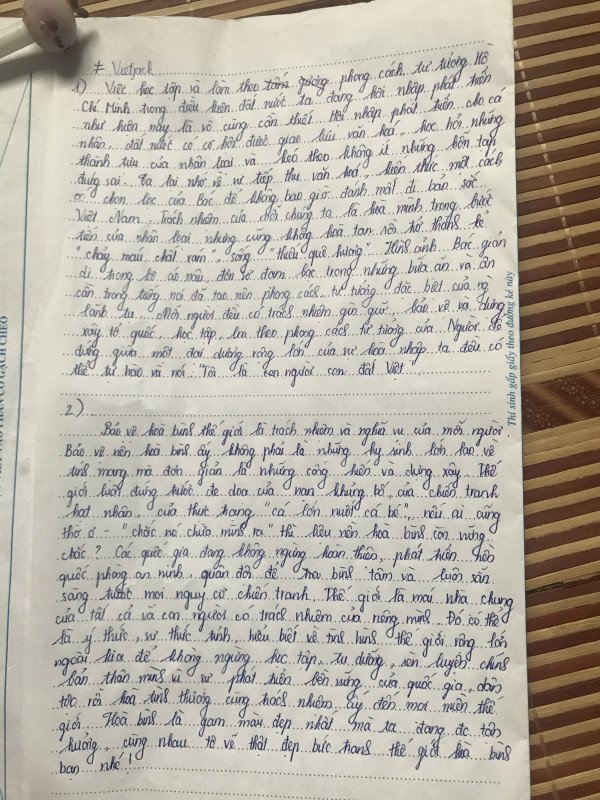 # Vietjack
1) Việc học tập và làm theo tấm gương phong cách, tư tưởng Hồ
Chí Minh trong điều kiện đất nước ta đang hội nhập phát triển
như hiện nay là vô cùng cần thiết. Hội nhập phát triển cho cá
nhân, đất nước có cơ hội được giao lưu văn hoá, học hỏi những
thành tựu của nhân loại và kéo theo không ít những hỗn tạp
đúng sai. Ta lại nhớ về sự tiếp thu văn hoá, kiến thức một cách
có chọn lọc của Bác để không bao giờ đánh mất đi bản sắc
Việt Nam. Trách nhiệm của mỗi chúng ta là hoà mình trong bước
tiến của nhân loại nhưng cũng không hoà tan rồi trở thành kẻ
"chảy máu chất xám", sống "thiếu quê hương". Hình ảnh Bác giản
dị trong bộ áo nâu, đơn sơ đạm bạc trong những bữa ăn và ân
cần trong tiếng nói đã tạo nên phong cách, tư tưởng đặc biệt của ng
lãnh tụ. Mỗi người đều có trách nhiệm gìn giữ, bảo vệ và dựng
xây tổ quốc, học tập, làm theo phong cách tư tưởng của Người để
đứng giữa một đại dương rộng lớn của sự hoà nhập ta đều có
thể tự hào và nói: "Tôi là con người con đất Việt
2)
Bảo vệ hoà bình thế giới là trách nhiệm và nghĩa vụ của mỗi người.
Bảo vệ nền hoà bình ấy không phải là những hy sinh lớn lao về
tính mạng mà đơn giản là những cống hiến và dựng xây. Thế
giới luôn đứng trước đe doạ của nạn khủng bố, của chiến tranh
hạt nhân, của thực trạng "cá lớn nuốt cá bé", nếu ai cũng
thờ ơ - "chắc nó chừa mình ra" thì liệu nền hoà bình còn vững
chắc? Các quốc gia đang không ngừng hoàn thiện, phát triển nền
quốc phòng an ninh, quân đội để bình tâm và luôn sẵn
sàng trước mọi nguy cơ chiến tranh. Thế giới là mái nhà chung
của tất cả và con người có trách nhiệm của riêng mình. Đó có thể
là ý thức, sự thức tỉnh, hiểu biết về tình hình thế giới rộng lớn
ngoài kia để không ngừng học tập, tu dưỡng, rèn luyện chính
bản thân mình vì sự phát triển bền vững của quốc gia, dân
tộc rồi hoà tình thương cùng trách nhiệm ấy đến mọi miền thế
giới. Hoà bình là gam màu đẹp nhất mà ta đang đc tận
hưởng, cùng nhau tô vẽ thật đẹp bức tranh thế giới hoà bình
bạn nhé!
Thí sinh gấp giấy theo đường kẻ này
VÀO PHẦN CÓ GẠCH CHÉO